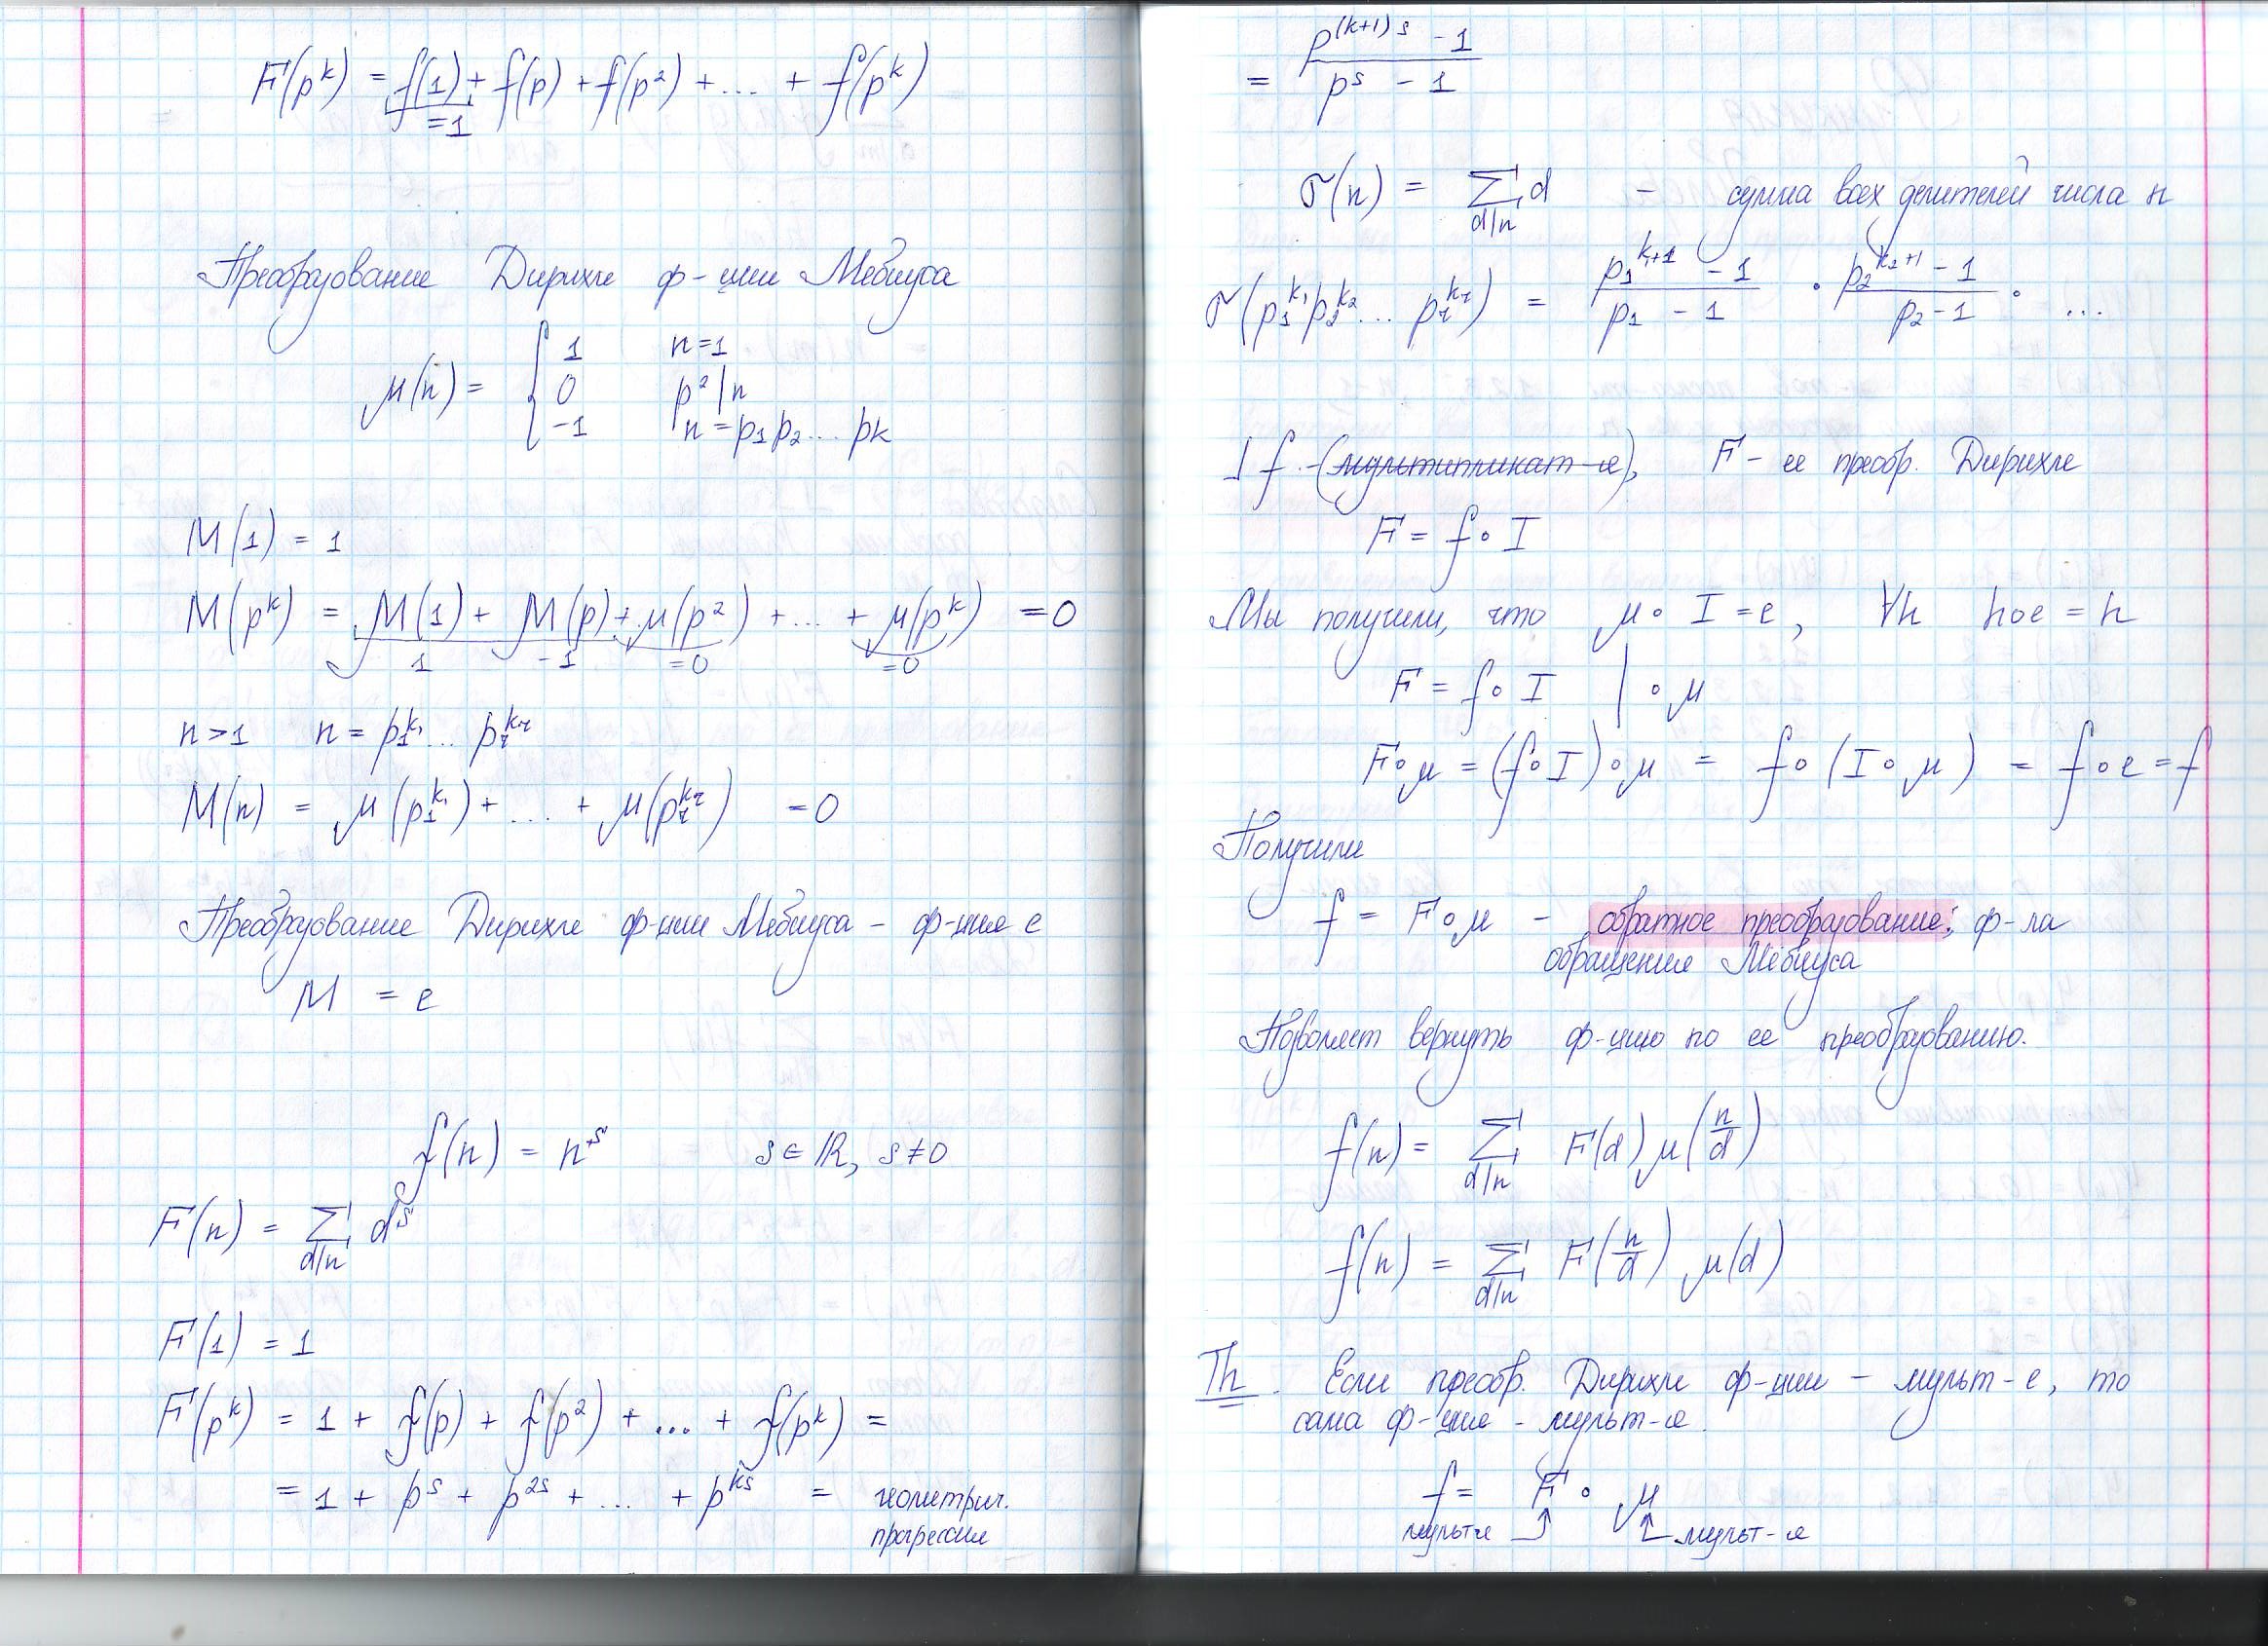 F(p^k) = f(1) + f(p) + f(p²) + ... + f(p^k)
=1
Преобразование Дирихле ф-ции Мебиуса
μ(n) = { 1 n=1
0 p²|n
-1 n = p₁p₂... pk
M(1) = 1
M(p^k) = M(1) + M(p) + μ(p²) + ... + μ(p^k) = 0
1 -1 =0 =0
n>1 n = p₁^k₁ ... p_r^k_r
M(n) = μ(p₁^k₁) + ... + μ(p_r^k_r) = 0
Преобразование Дирихле ф-ции Мебиуса - ф-ция e
M = e
f(n) = n^s s ∈ ℝ, s≠0
F(n) = Σ d^s
d|n
F(1) = 1
F(p^k) = 1 + f(p) + f(p²) + ... + f(p^k) =
= 1 + p^s + p^2s + ... + p^ks = геометрич.
прогрессии
= (p^(k+1)s - 1) / (p^s - 1)
σ(n) = Σ d - сумма всех делителей числа n
d|n
σ(p₁^k₁ p₂^k₂ ... p_r^k_r) = (p₁^k₁+1 - 1)/(p₁ - 1) · (p₂^k₂+1 - 1)/(p₂ - 1) · ...
] f - (мультипликат-я), F - ее преобр. Дирихле
F = f ∘ I
Мы получили, что μ ∘ I = e, ∀h h∘e = h
F = f∘ I | ∘ μ
F∘μ = (f∘I)∘μ = f∘(I∘μ) = f∘e = f
Получили
f = F∘μ - обратное преобразование; ф-ла
обращения Мёбиуса
Позволяет вернуть ф-цию по ее преобразованию.
f(n) = Σ F(d) μ(n/d)
d|n
f(n) = Σ F(n/d) μ(d)
d|n
Th. Если преобр. Дирихле ф-ции - мульт-е, то
сама ф-ция - мульт-я.
f = F ∘ μ
мульт-я мульт-я